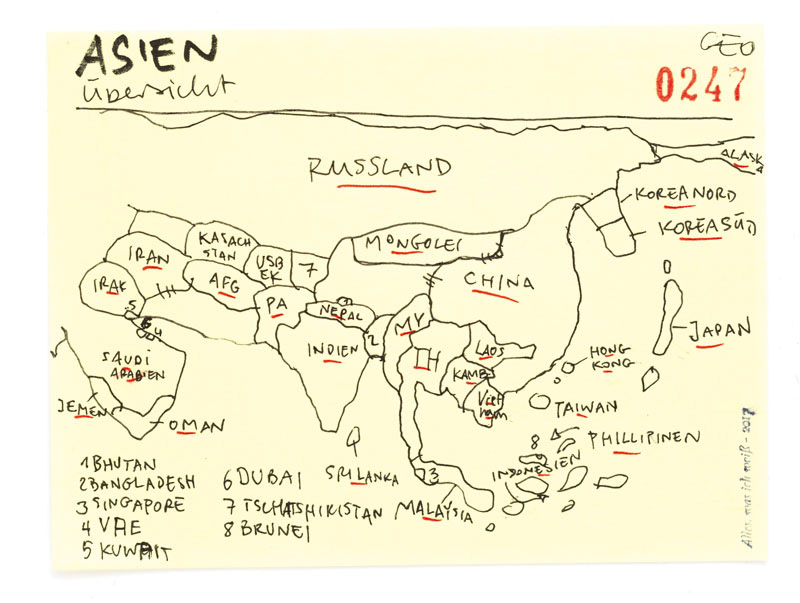 ASIEN
GEO
Übersicht
0247
ALASKA
RUSSLAND
KOREA NORD
KOREA SÜD
KASACH
STAN
MONGOLEI
IRAN
USB
EK
7
AFG
CHINA
IRAK
PA
NEPAL
1
5
MY
6
4
INDIEN
2
JAPAN
SAUDI
ARABIEN
TH
LAOS
HONG
KONG
KAMB
JEMEN
VIET
nam
TAIWAN
OMAN
8
PHILLIPINEN
INDONESIEN
SRI LANKA
3
MALAYSIA
1 BHUTAN
2 BANGLADESH
3 SINGAPORE
4 VAE
5 KUWAIT
6 DUBAI
7 TSCHATSHIKISTAN
8 BRUNEI
Alles, was ich weiß - 2017